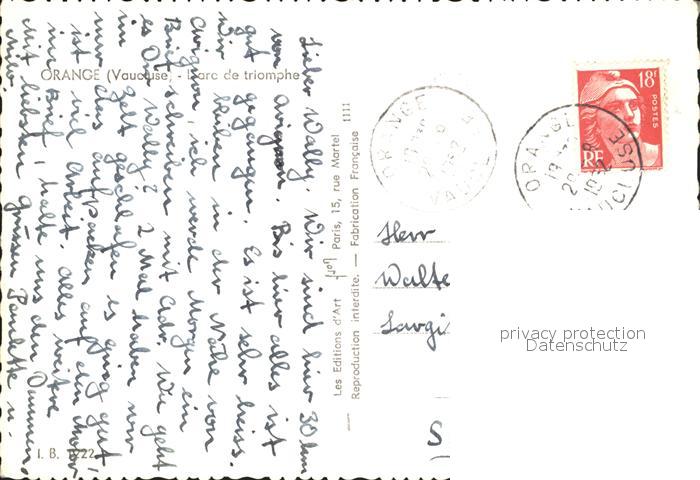 ORANGE (Vaucluse) - L'arc de triomphe
Lieber Wally, Wir sind hier 30 km
von Avignon. Bis hier alles ist
gut gegangen. Es ist sehr heiss.
Wir bleiben in der Nähe von
Avignon, ich werde Morgen ein
Brief schreiben mit Adr. Wie geht
es Dir Wally? 2 Mal haben wir
im Zelt geschlafen es ging gut
nur das aufpacken auf dem Motor
ist viel Arbeit. Alles weitere
im Brief, halte uns den Daumen
mit liebsten Grüssen Paulette
I. B. 1222
Les Editions d'Art Paris, 15, rue Martel 1111
Reproduction interdite. — Fabrication Française
ORANGE
VAUCLUSE
ORANGE
VAUCLUSE
18F
POSTES
RF
Herr
Walte
S
privacy protection
Datenschutz